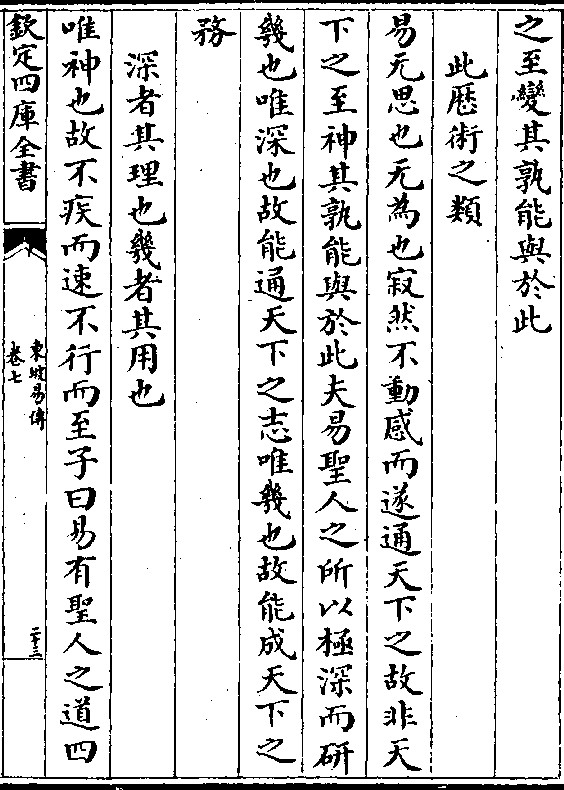 之至變其孰能與於此
此厯術之類
易无思也无為也寂然不動感而遂通天下之故非天
下之至神其孰能與於此夫易聖人之所以極深而研
幾也唯深也故能通天下之志唯幾也故能成天下之
務
深者其理也幾者其用也
唯神也故不疾而速不行而至子曰易有聖人之道四
欽定四庫全書
東坡易傳
卷七
二十三